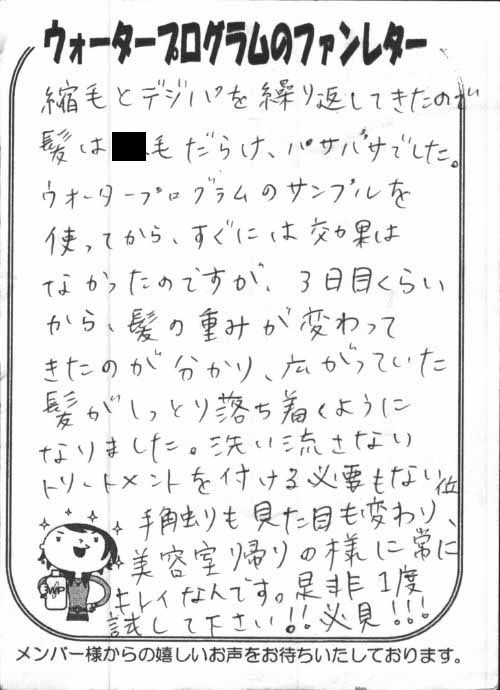 ウォータープログラムのファンレター
縮毛とデジパを繰り返してきたので
髪は毛だらけ、パサパサでした。
ウォータープログラムのサンプルを
使ってから、すぐには効果は
なかったのですが、3日目くらい
から、髪の重みが変わって
きたのが分かり、広がっていた
髪がしっとり落ち着くように
なりました。洗い流さない
トリートメントを付ける必要もない位
手触りも見た目も変わり、
美容室帰りの様に常に
キレイなんです。是非1度
試して下さい!!必見!!!
WP
メンバー様からの嬉しいお声をお待ちいたしております。